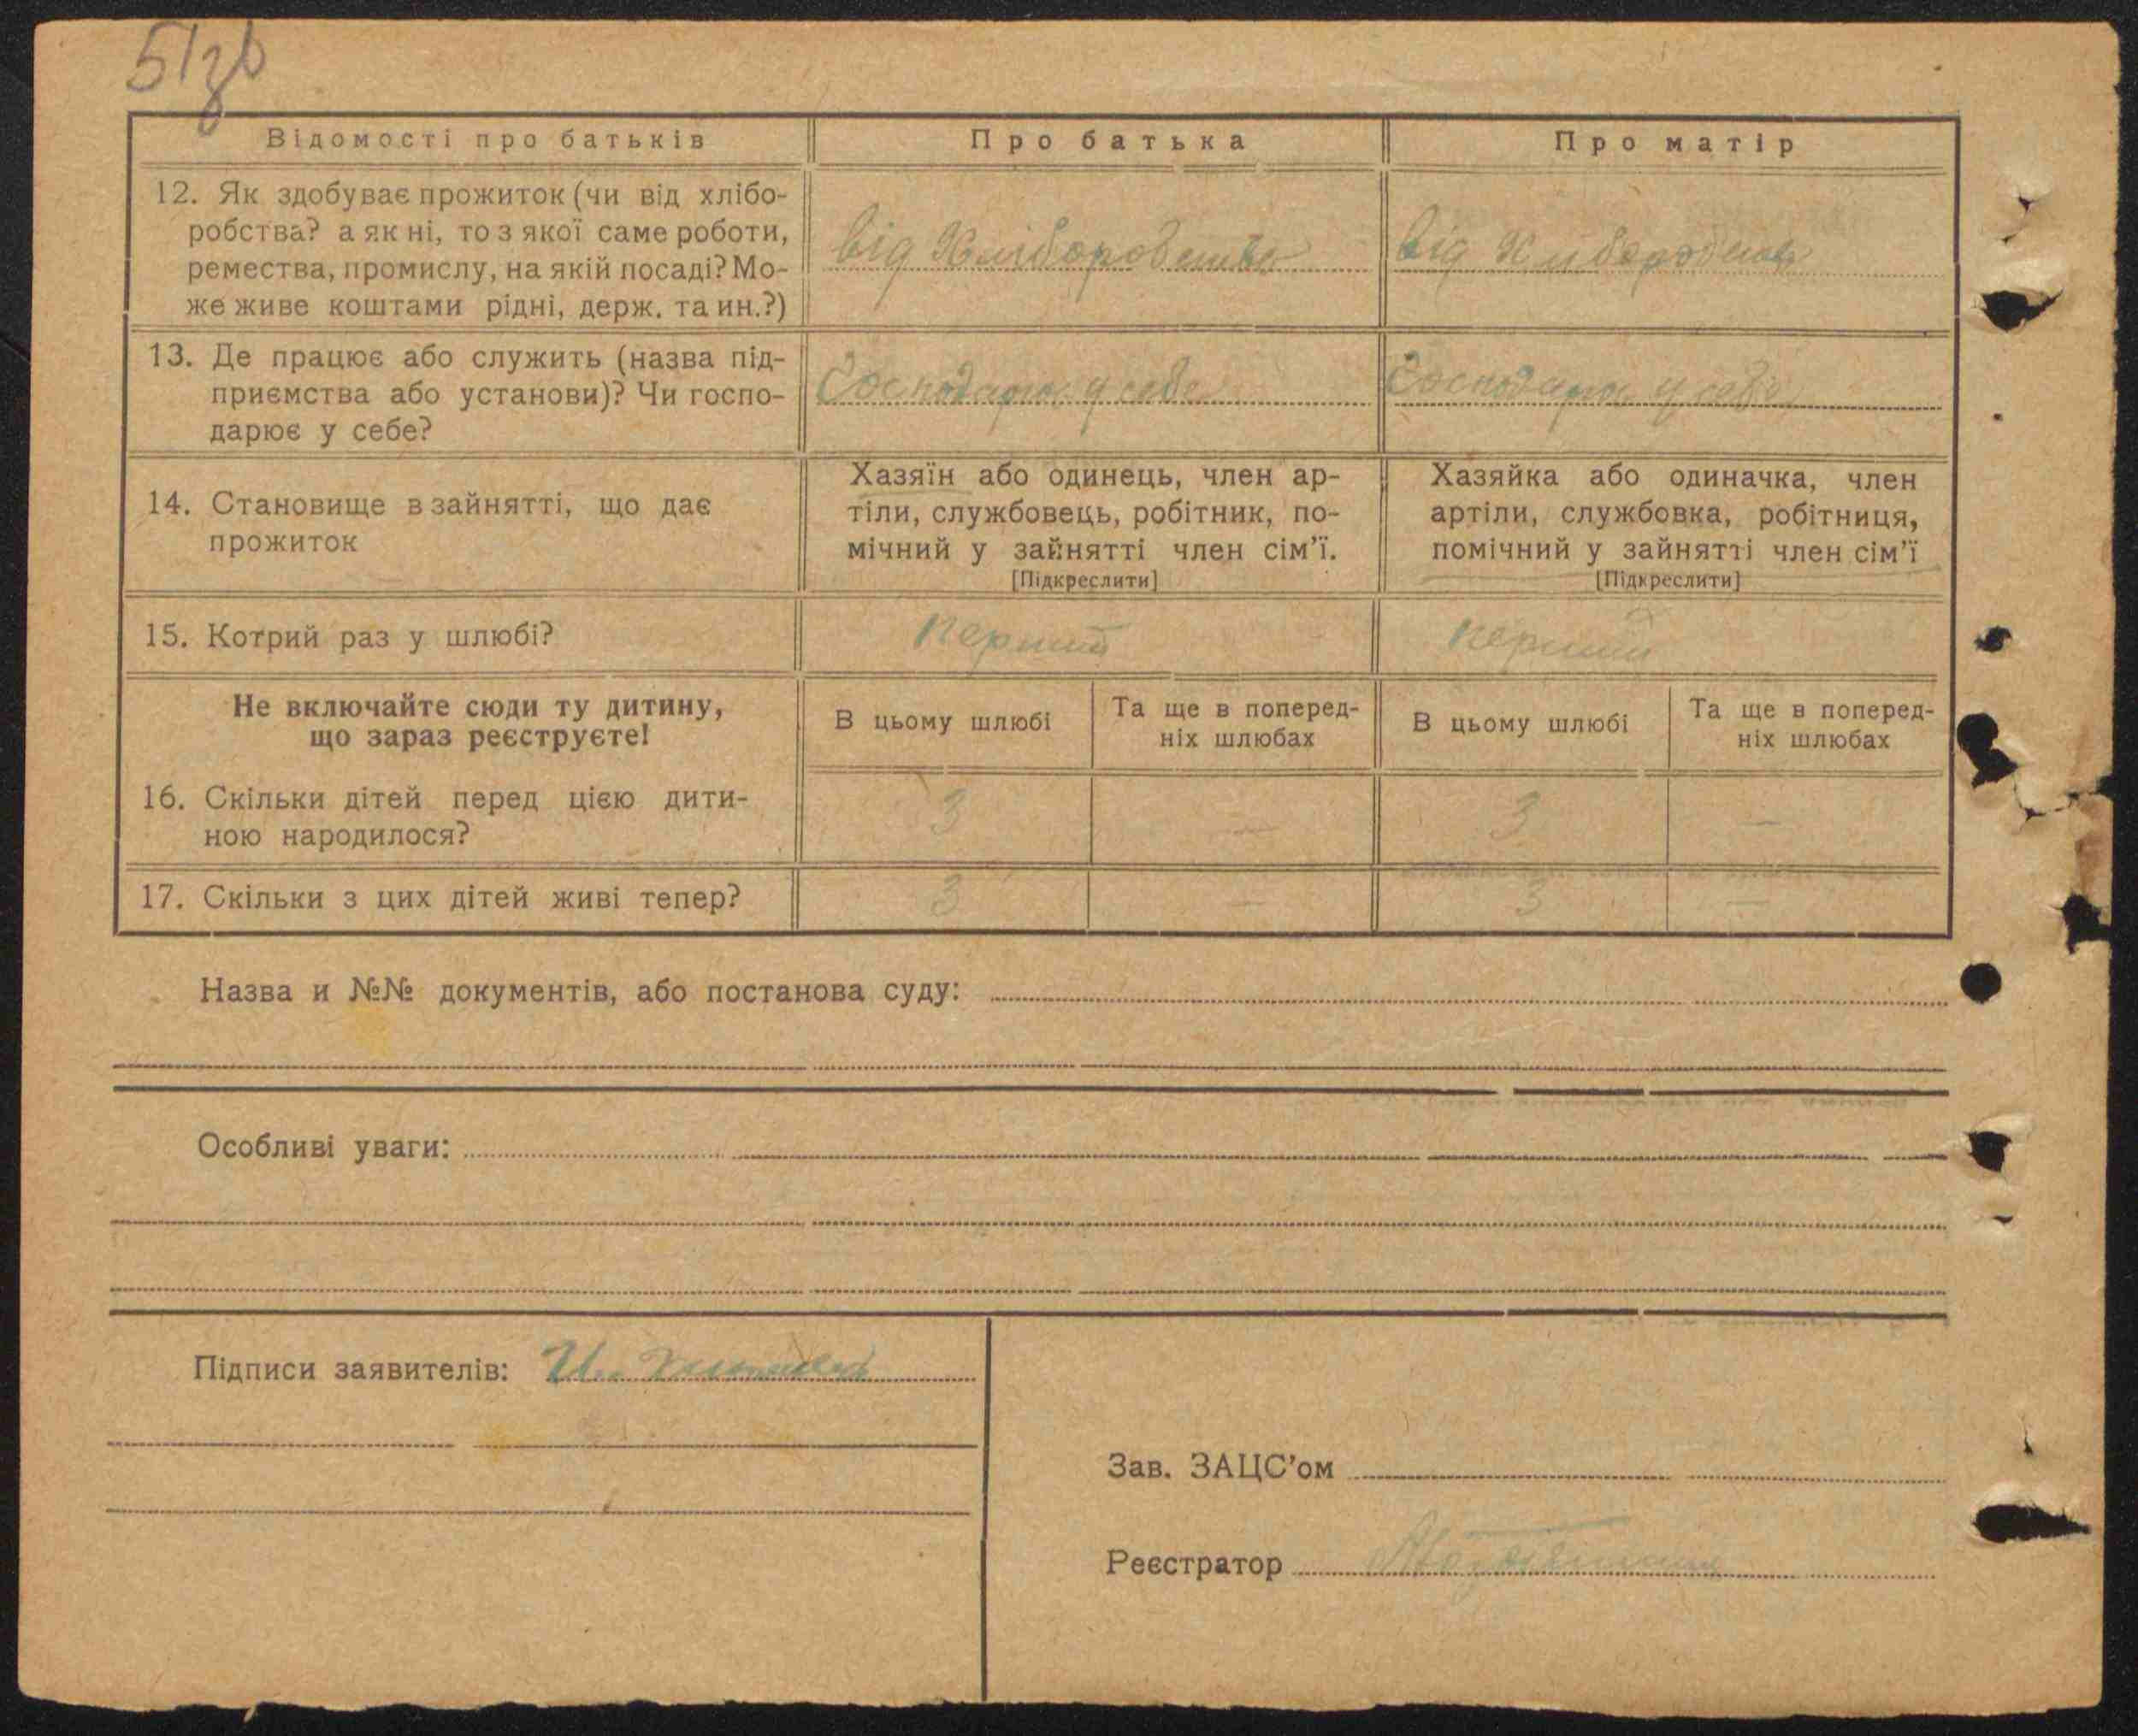 51зв
Відомості про батьків
Про батька
Про матір
12. Як здобуває прожиток (чи від хлібо-
робства? а як ні, то з якої саме роботи,
ремества, промислу, на якій посаді? Мо-
же живе коштами рідні, держ. та ин.?)
від Хліборобства
від Хліборобства
13. Де працює або служить (назва під-
приємства або установи)? Чи госпо-
дарює у себе?
Господарює у себе
Господарює у себе
14. Становище в зайнятті, що дає
прожиток
Хазяїн або одинець, член ар-
тіли, службовець, робітник, по-
мічний у зайнятті член сім'ї.
[Підкреслити]
Хазяйка або одиначка, член
артіли, службовка, робітниця,
помічний у зайнятті член сім'ї
[Підкреслити]
15. Котрий раз у шлюбі?
перший
перший
Не включайте сюди ту дитину,
що зараз реєструєте!
В цьому шлюбі
Та ще в поперед-
ніх шлюбах
В цьому шлюбі
Та ще в поперед-
ніх шлюбах
16. Скільки дітей перед цією дити-
ною народилося?
3
—
3
—
17. Скільки з цих дітей живі тепер?
3
—
3
—
Назва и №№ документів, або постанова суду:
Особливі уваги:
Підписи заявителів:
Зав. ЗАЦС'ом
Реєстратор